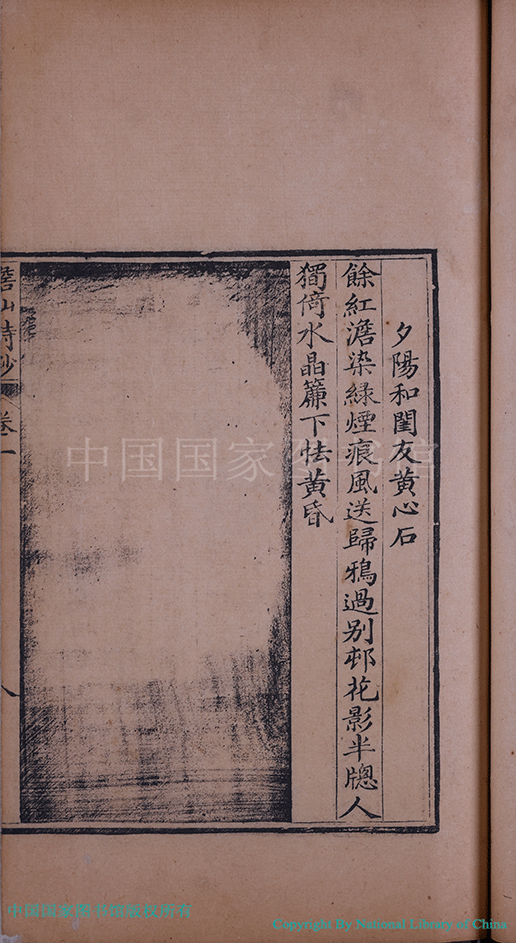 夕陽和閨友黃心石
餘紅澹染綠煙痕風送歸鴉過别邨花影半牕人
獨倚水晶簾下怯黃昏
山詩鈔
卷一
八
中国国家图书馆
中国国家图书馆版权所有
Copyright By National Library of China